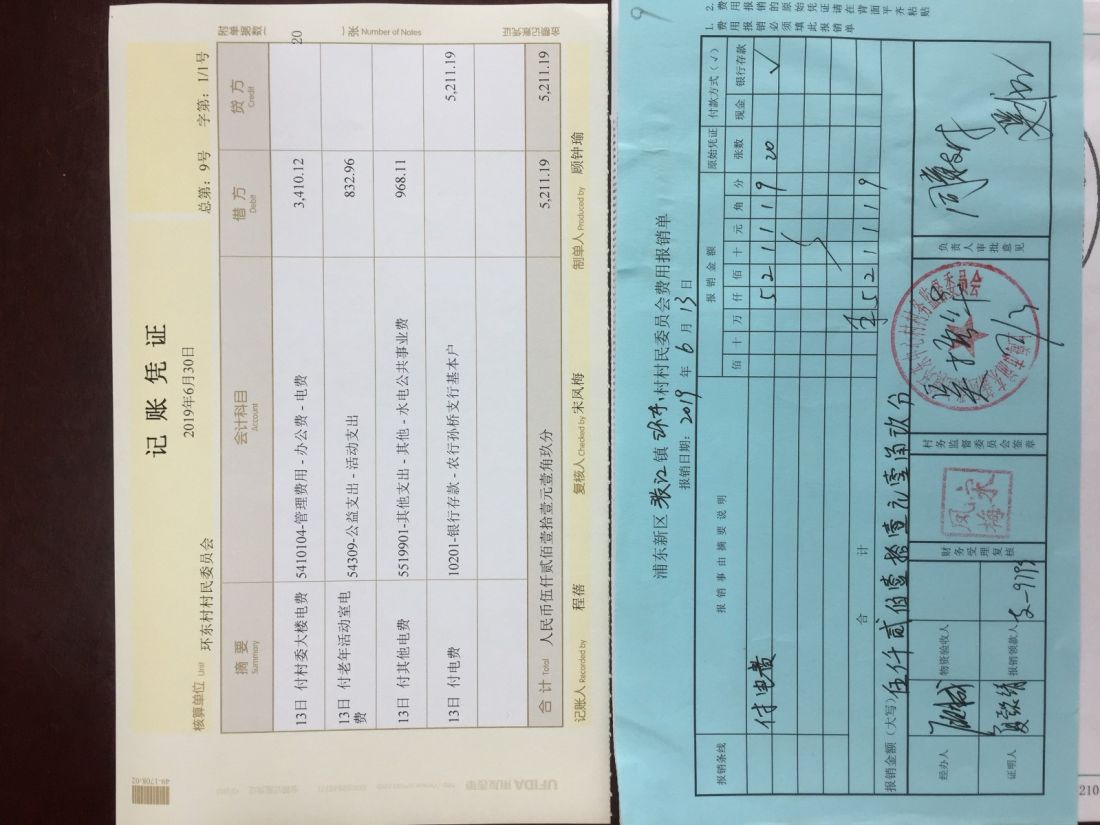 记账凭证
2019年6月30日
核算单位 Unit 环东村村民委员会 总第：9号 字第：1/1号
附单据数 20 张 Number of Notes
摘要 Summary 会计科目 Account 借方 Debit 贷方 Credit
13日 付村委大楼电费 5410104-管理费用 - 办公费 - 电费 3,410.12
13日 付老年活动室电费 54309-公益支出 - 活动支出 832.96
13日 付其他电费 5519901-其他支出 - 其他 - 水电公共事业费 968.11
13日 付电费 10201-银行存款 - 农行孙桥支行基本户 5,211.19
合计 Total 人民币伍仟贰佰壹拾壹元壹角玖分 5,211.19 5,211.19
记账人 Recorded by 程蓓 复核人 Checked by 宋凤梅 制单人 Produced by 顾钟瑜
UFIDA
49-1708-02
9
1. 费用报销必须填此报销单
2. 费用报销的原始凭证请在背面平齐粘贴
浦东新区张江镇环东村村民委员会费用报销单
报销日期：2019年6月13日
报销条线 报销事由摘要说明 报销金额 原始凭证 付款方式（√）
百 十 万 仟 佰 十 元 角 分 张数 现金 银行存款
付电费 5 2 1 1 1 9 20 √
合计 ¥ 5 2 1 1 1 9
报销金额（大写）伍仟贰佰壹拾壹元壹角玖分
经办人 物资验收人 财务受理复核 宋凤梅 村务监督委员会签章 负责人审批意见
证明人 报销领款人
210